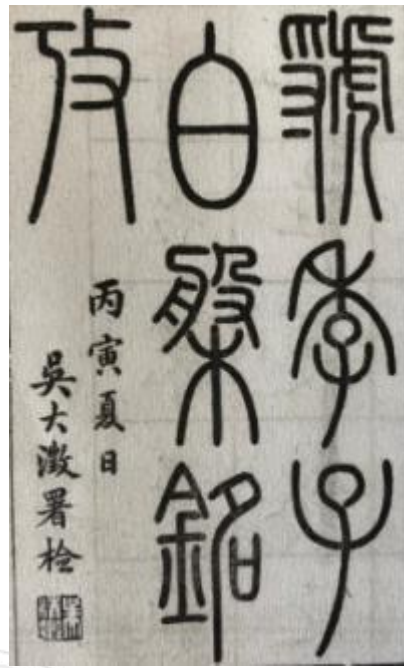 虢季子
白盤銘
攷
丙寅夏日
吳大澂署檢